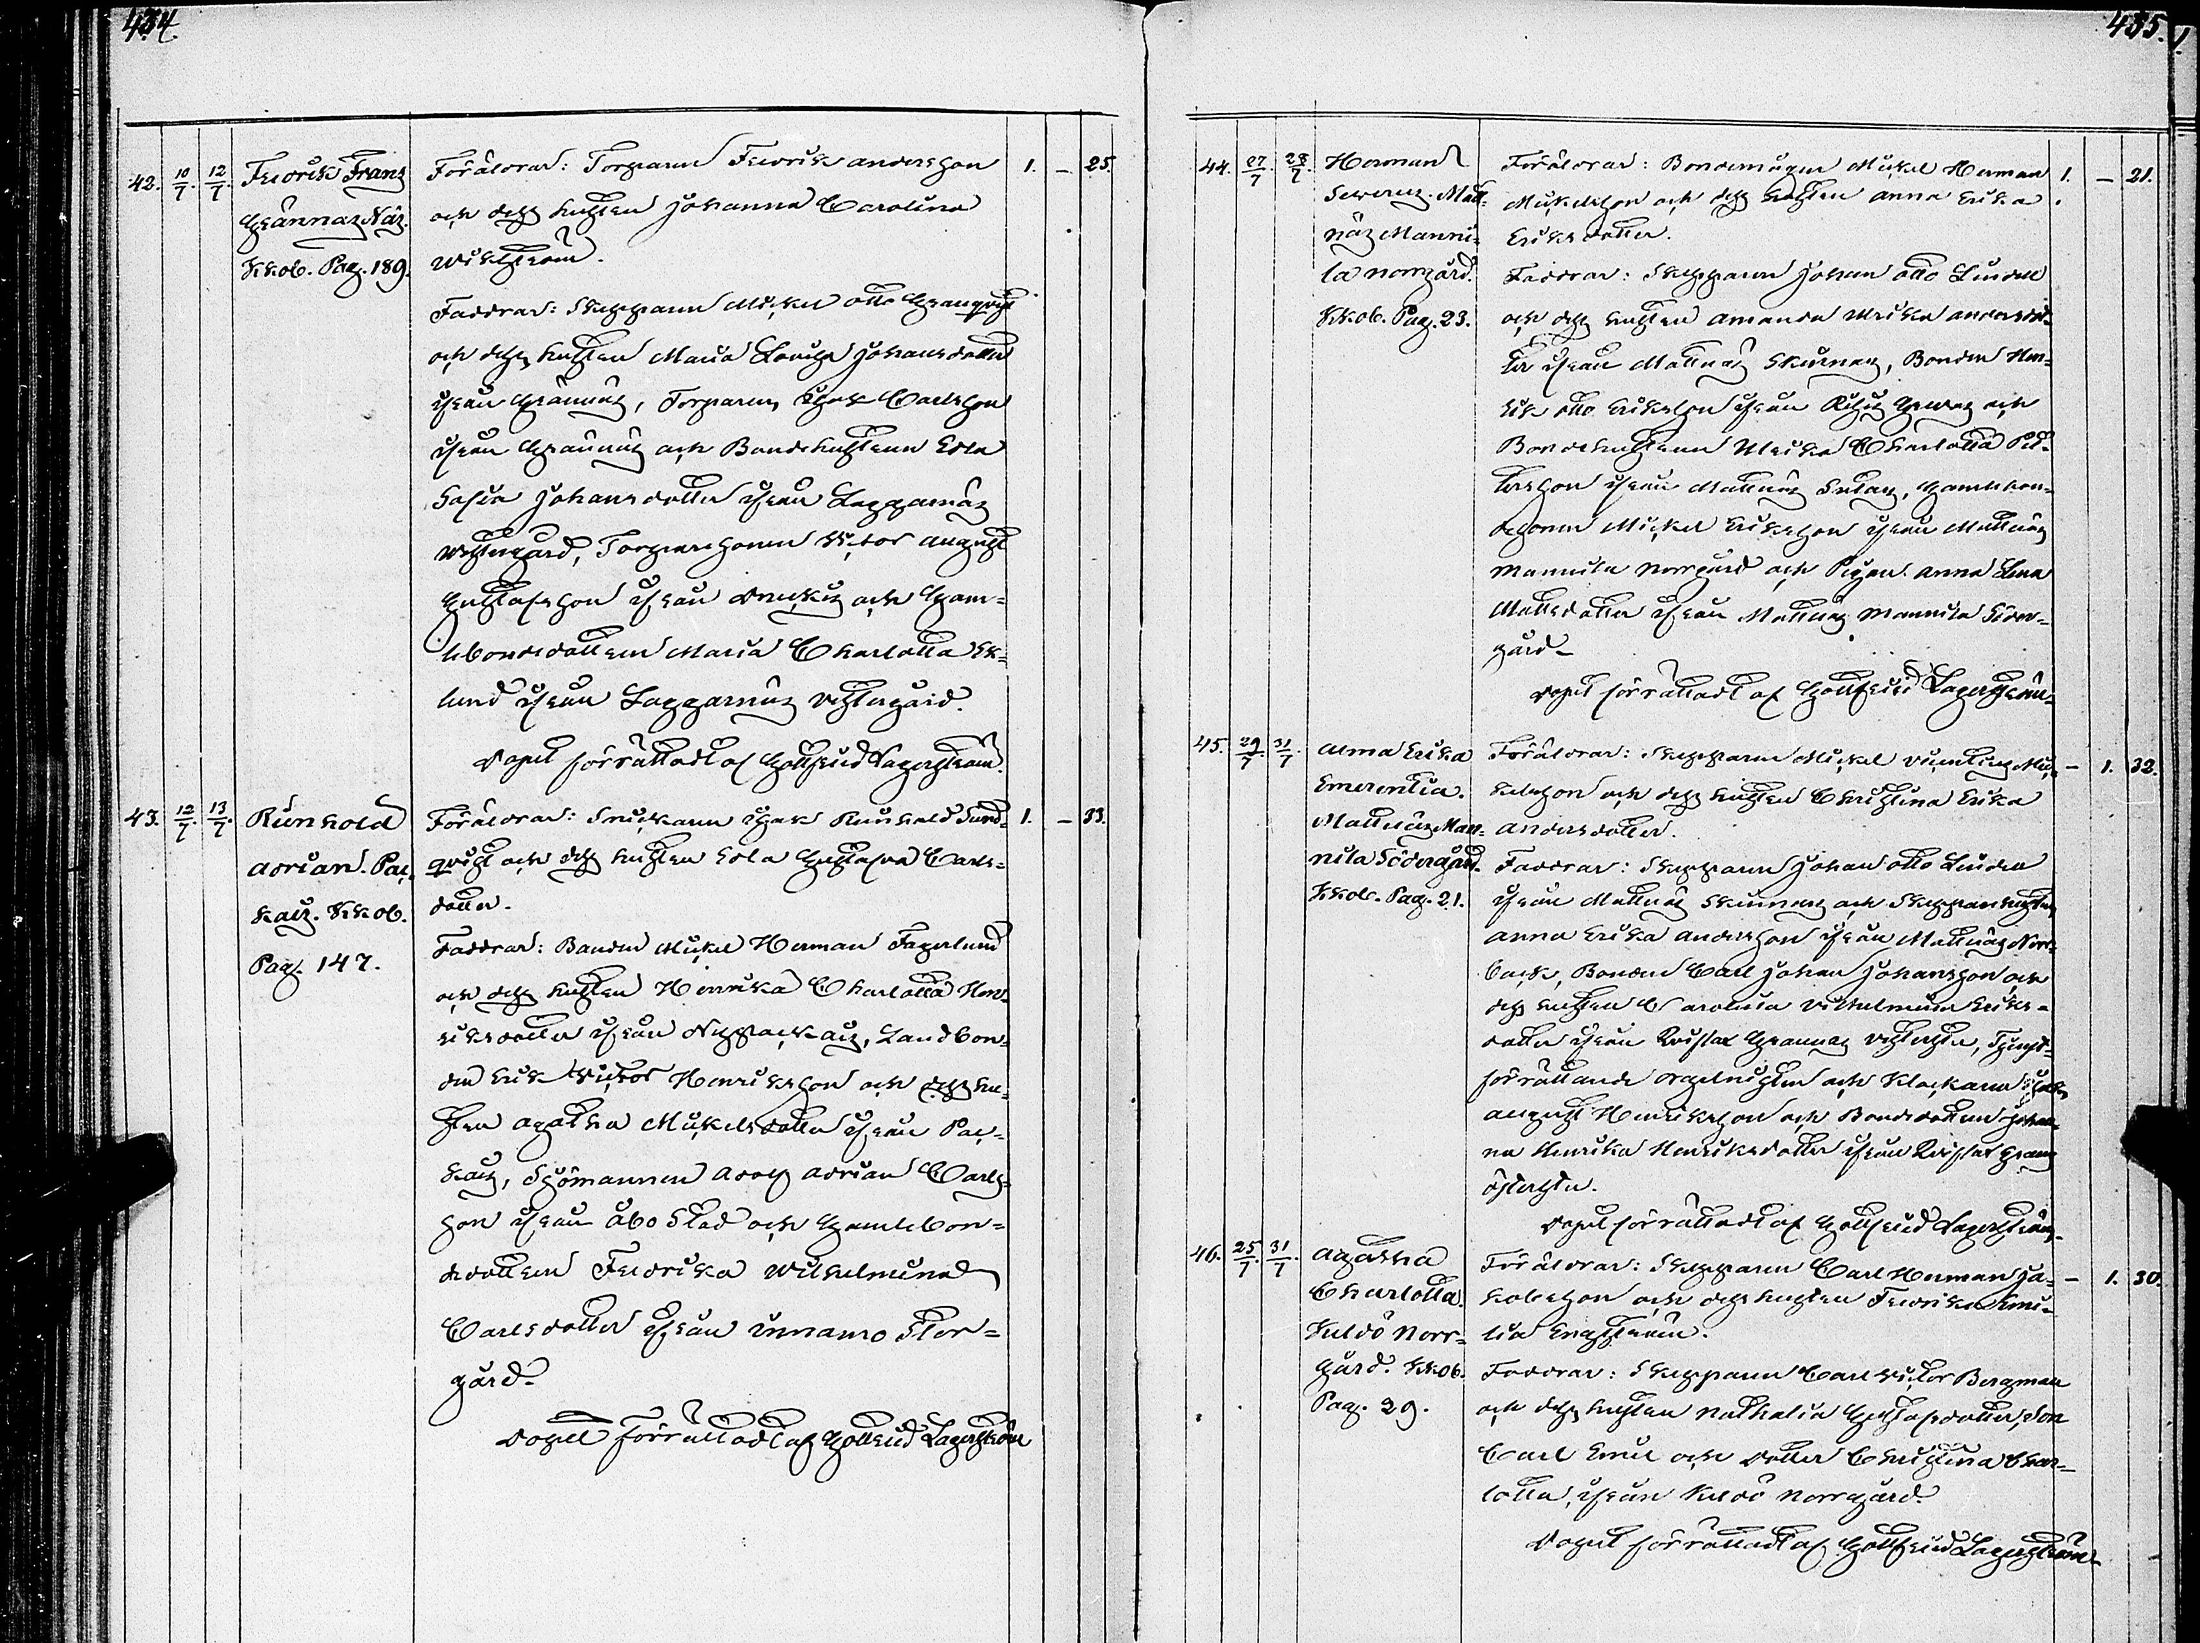 434.
42. 10/7. 12/7. Fredrik Franz
Grännäs Näs.
Kkob. Pag. 189.
Föräldrar: Torparen Fredrik Andersson 1. – 25.
och dess hustru Johanna Carolina
Wikström.
Faddrar: Skepparen Mickel Otto Granqvist
och dess hustru Maria Lovisa Johansdotter
ifrån Grännäs, Torparen Isak Carlsson
ifrån Grännäs och Bondehustrun Edla
Sofia Johansdotter ifrån Laggarnäs
Westergård, Torparesonen Victor August
Gustafsson ifrån och Gam-
lebondedottern Maria Charlotta Ek-
lund ifrån Laggarnäs Westergård.
Dopet förrättadt af Gottfrid Lagerström.
43. 12/7. 13/7. Reinhold
Adrian. Pac-
kais. Kkob.
Pag. 147.
Föräldrar: Snickaren Isak Reinhold Sund- 1. – 33.
qvist och dess hustru Edla Gustafva Carls-
dotter.
Faddrar: Bonden Mickel Herman Fagerlund
och dess hustru Henrika Charlotta Hen-
riksdotter ifrån, Landbon-
den Erik Victor Henriksson och dess hu-
stru Agatha Mickelsdotter ifrån Pac-
kais, Sjömannen Adolf Adrian Carls-
son ifrån Åbo Stad och Gamlebon-
dedottern Fredrika Wilhelmina
Carlsdotter ifrån Innamo Stor-
gård.
Dopet förrättadt af Gottfrid Lagerström
435.
44. 27/7. 28/7. Herman
Severus. Matt-
näs Manni-
la Norrgård.
Kkob. Pag. 23.
Föräldrar: Bondemågen Mickel Herman 1. – 21.
Mickelsson och dess hustru Anna Erika
Eriksdotter.
Faddrar: Skepparen Johan Otto Linden
och dess hustru Amanda Ulrika Andersdot-
ter ifrån Mattnäs Skinnars, Bonden Hen-
rik Otto Eriksson ifrån och
Bondehustrun Ulrika Charlotta Pet-
tersson ifrån Mattnäs, Gamlebon-
desonen Mickel Eriksson ifrån Mattnäs
Mannila Norrgård och Pigan Anna Lena
Mattsdotter ifrån Mattnäs Mannila Söder-
gård.
Dopet förrättadt af Gottfrid Lagerström.
45. 29/7. 31/7. Alma Erika
Emerentia.
Mattnäs Man-
nila Södergård.
Kkob. Pag. 21.
Föräldrar: Skepparen Mickel Mic- – 1. 32.
kelsson och dess hustru Christina Erika
Andersdotter.
Faddrar: Skepparen Johan Otto Linden
ifrån Mattnäs Skinnars och Skepparehustrun
Anna Erika Andersson ifrån Mattnäs Norr-
back, Bonden Carl Johan Johansson och
dess hustru Carolina Vilhelmina Eriks-
dotter ifrån Westerste, Tjenst-
förrättande Orgelnisten och Klockaren
August Henriksson och Bondedottern Johan-
na Henrika Henriksdotter ifrån
Österste.
Dopet förrättadt af Gottfrid Lagerström.
46. 25/7. 31/7. Agatha
Charlotta.
Kuldö Norr-
gård. Kkob.
Pag. 29.
Föräldrar: Skepparen Carl Herman Ja- – 1. 30.
kobsson och dess hustru Fredrika Emi-
lia Engström.
Faddrar: Skepparen Carl Victor Bergman
och dess hustru Nathalia Gustafsdotter, Son
Carl Emil och dotter Christina Char-
lotta, ifrån Kuldö Norrgård.
Dopet förrättadt af Gottfrid Lagerström.